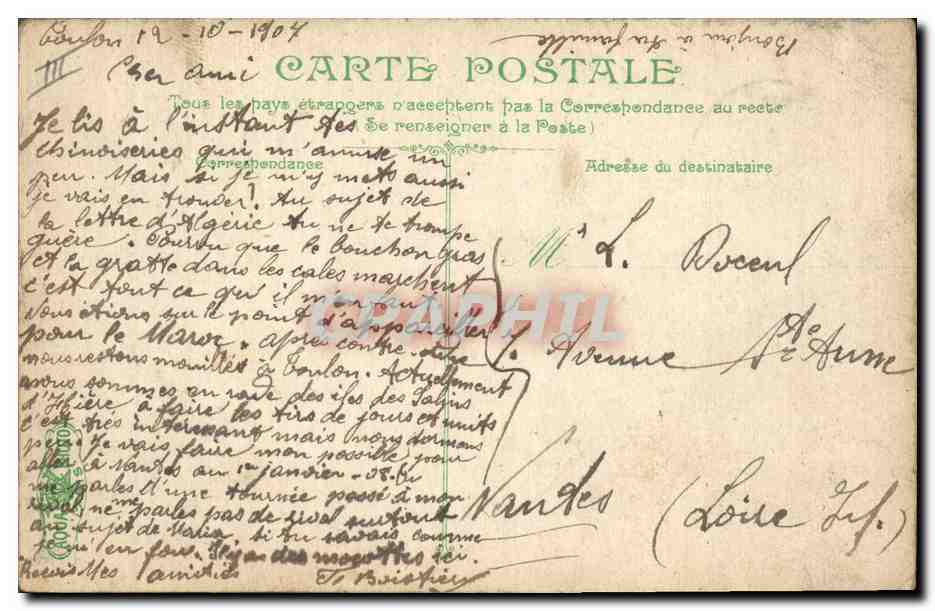 Toulon 12-10-1907
Bonjour à ta famille
III
Cher ami
CARTE POSTALE
Tous les pays étrangers n'acceptent pas la Correspondance au recto
(Se renseigner à la Poste)
Correspondance
Adresse du destinataire
Je lis à l'instant tes
chinoiseries qui m'amuse un
peu. Mais si je m'y mets aussi
je vais en trouver! Au sujet de
ta lettre d'Algérie tu ne te trompe
guère. Pourvu que le bouchon gras
et la gratte dans les cales marchent
c'est tout ce qu'il m'en faut
Nous étions sur le point d'appareiller
pour le Maroc. après contre-ordre
nous restons mouillés à Toulon. Actuellement
nous sommes en rade des îles des Salins
d'Hière à faire les tirs de jours et nuits
c'est très intéressant mais nous dormons
peu. Je vais faire mon possible pour
aller à Nantes au 1er janvier-08. Tu
me parles d'une tournée passé à mon
ne me parles pas de rival surtout
au sujet de Maria. si tu savais comme
en fou. des ici.
Reçois Mes amitiés
Mr L. Doceul
1. Avenue Ste Anne
Nantes
(Loire Inf.)
CPAPHIL